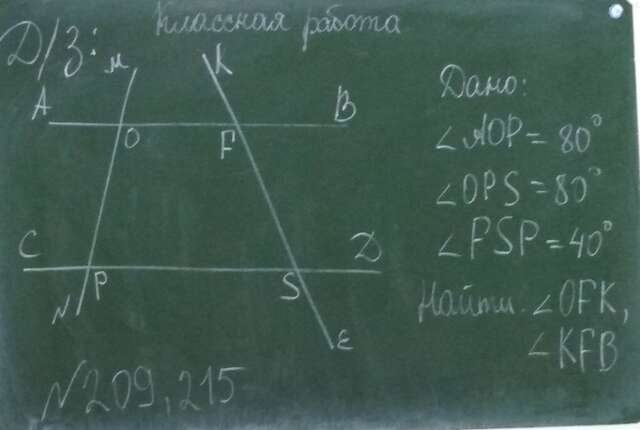 Классная работа
Д/З:
M
K
A
B
O
F
Дано:
∠AOP = 80°
∠OPS = 80°
∠FSP = 40°
C
D
P
S
N
E
Найти. ∠OFK,
∠KFB
N209, 215